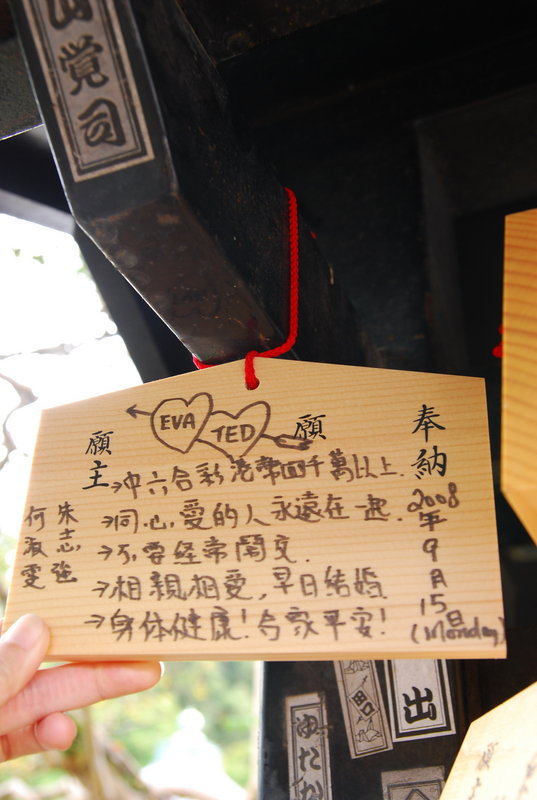 山覚司
EVA
TED
奉納
2008
年
9
月
15
日
(Monday)
願
→中六合彩港幣四千萬以上.
→同心愛的人永遠在一起.
→不要經常鬧交.
→相親相愛,早日結婚.
→身体健康!合家平安!
願主
朱志強
何淑雯
出